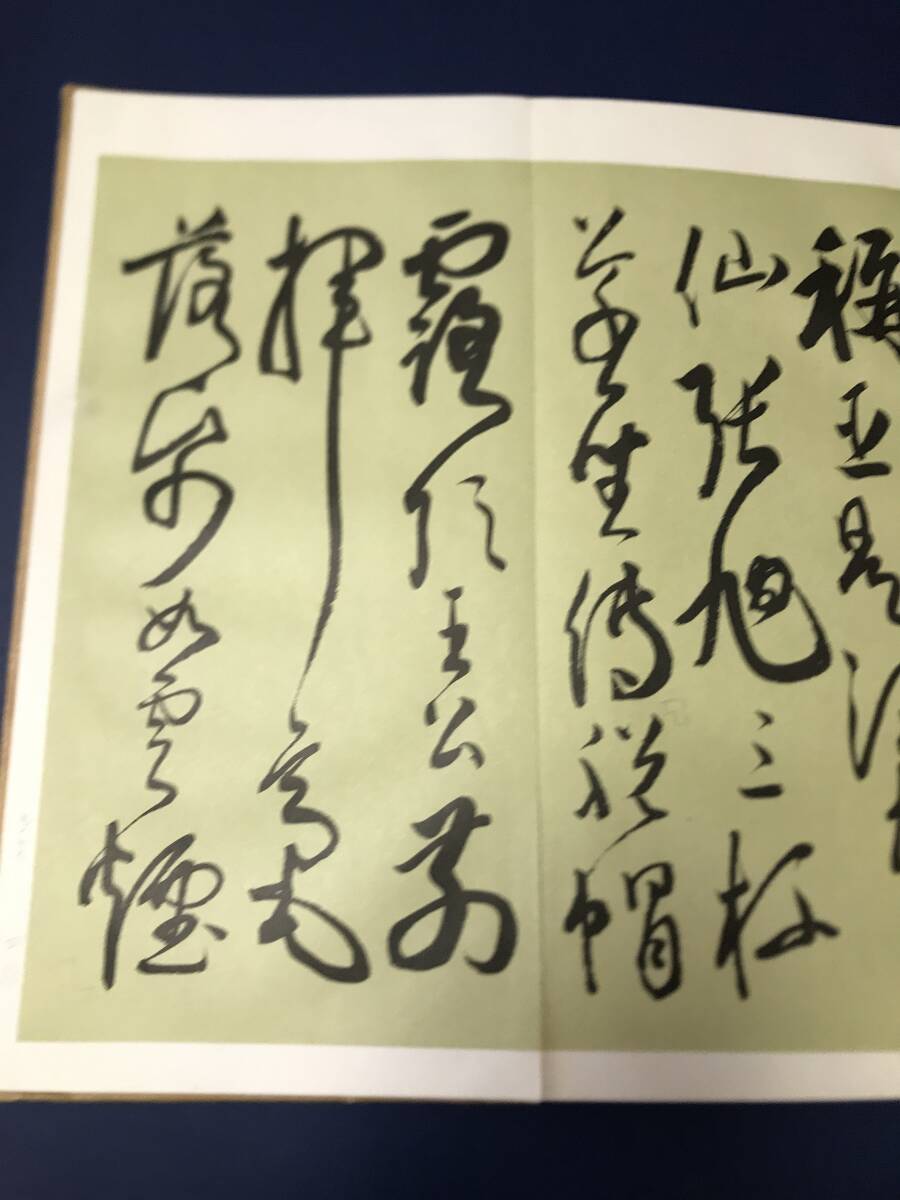 稱臣是酒
仙張旭三杯
草聖傳脫帽
露頂王公前
揮毫
落紙如雲煙